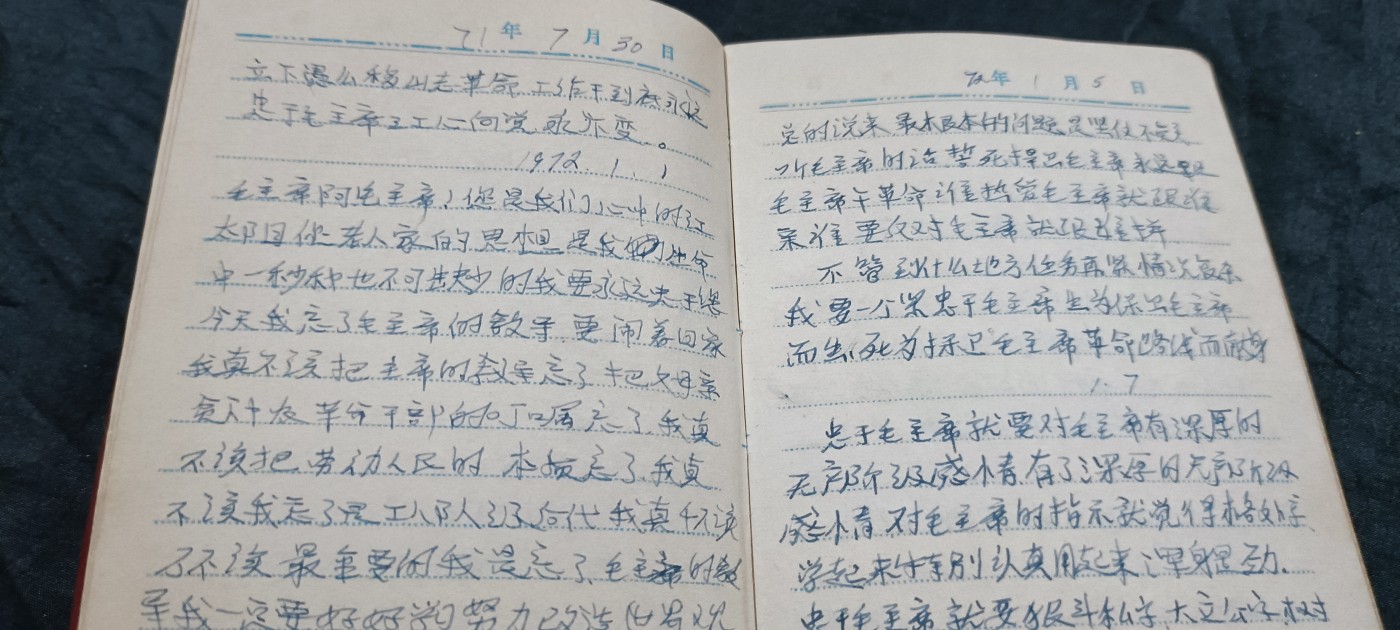 71年7月30日
立下愚公移山志革命工作干到底永远
忠于毛主席红心向党永不变。
1972.1.1
毛主席阿毛主席！您是我们心中的红
太阳您老人家的思想是我们生命
中一秒种也不可缺少的我要永远忠于您
今天我忘了毛主席的教导要闹着回家
我真不该把主席的教导忘了把父母亲
革命干部的忘了我真
不该把劳动人民的本质忘了我真
不该我忘了是工人后代我真不该
了不该最重要的我是忘了毛主席的教
导我一定要好好学习努力改造
72年1月5日
总的说来最根本的问题是
毛主席的话誓死捍卫毛主席永远跟
毛主席干革命谁热爱毛主席就跟谁
亲谁要反对毛主席就跟谁拼
不管到什么地方任务再紧情况复杂
我要一个忠于毛主席生为保卫毛主席
而生死为捍卫毛主席革命路线而献身
1.7
忠于毛主席就要对毛主席有深厚的
无产阶级感情有了深厚的无产阶级
感情对毛主席的指示就觉得格外亲
学起来特别认真用起来浑身是劲.
忠于毛主席就要狠斗私字大立公字树